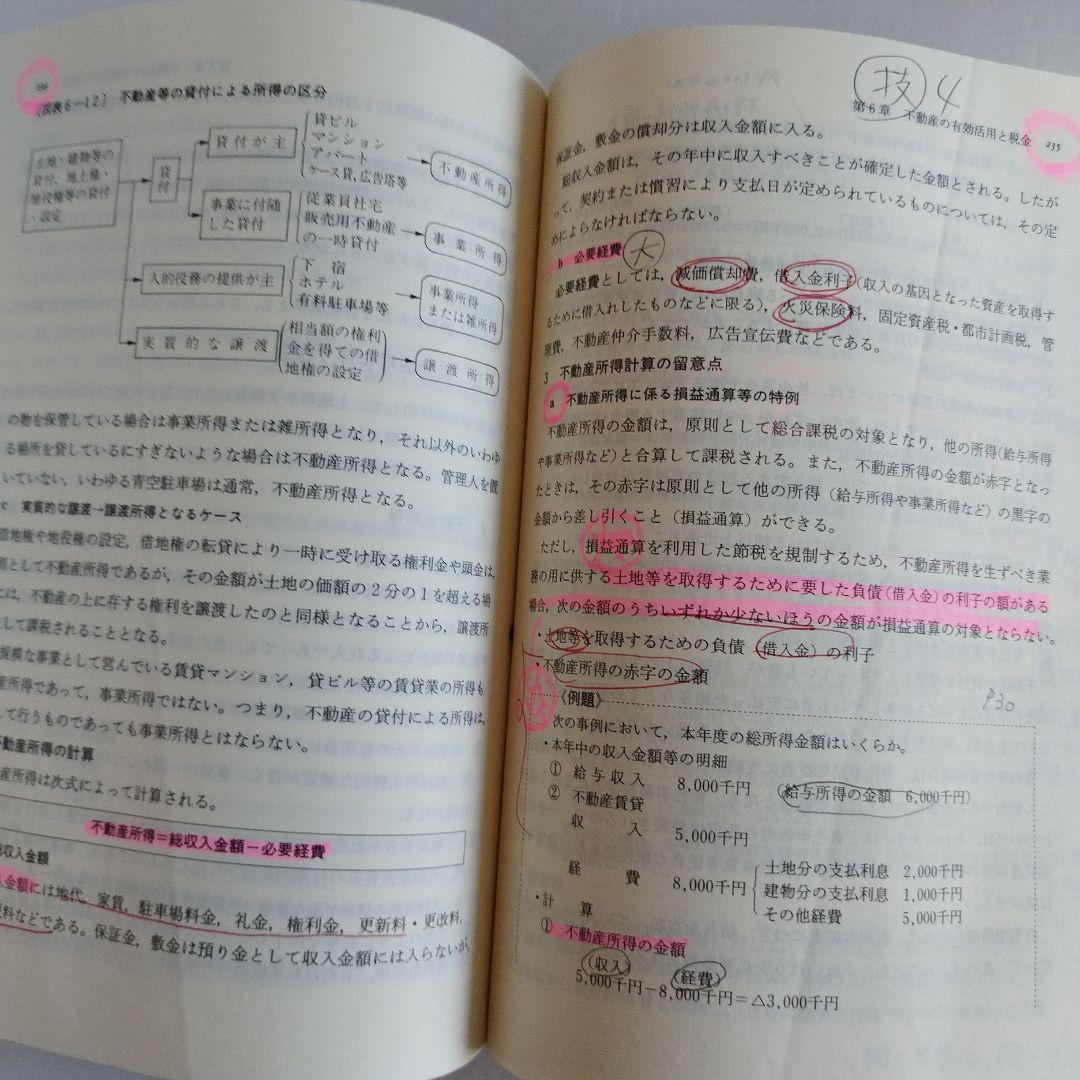 〔図表6―12〕 不動産等の貸付による所得の区分
土地・建物等の
貸付、地上権・
地役権等の貸付
・設定
貸付
貸付が主
貸ビル
マンション
アパート
ケース貸,広告塔等
不動産所得
事業に付随
した貸付
従業員社宅
販売用不動産
の一時貸付
事業所得
人的役務の提供が主
下宿
ホテル
有料駐車場等
事業所得
または雑所得
実質的な譲渡
相当額の権利
金を得ての借
地権の設定
譲渡所得
の物を保管している場合は事業所得または雑所得となり,それ以外のいわゆ
る場所を貸しているにすぎないような場合は不動産所得となる。管理人を置
いていない,いわゆる青空駐車場は通常,不動産所得となる。
c 実質的な譲渡→譲渡所得となるケース
借地権や地役権の設定,借地権の転貸により一時に受け取る権利金や頭金は,
として不動産所得であるが,その金額が土地の価額の2分の1を超える場
には,不動産の上に存する権利を譲渡したのと同様となることから,譲渡所
として課税されることとなる。
規模な事業として営んでいる賃貸マンション,貸ビル等の賃貸業の所得も
産所得であって,事業所得ではない。つまり,不動産の貸付による所得は,
して行うものであっても事業所得とはならない。
不動産所得の計算
産所得は次式によって計算される。
不動産所得=総収入金額-必要経費
総収入金額
入金額には地代,家賃,駐車場料金,礼金,権利金,更新料・更改料,
料などである。保証金,敷金は預り金として収入金額には入らないが,
技 4
第6章 不動産の有効活用と税金 235
保証金,敷金の償却分は収入金額に入る。
総収入金額は,その年中に収入すべきことが確定した金額とされる。したが
って,契約または慣習により支払日が定められているものについては,その定
めによらなければならない。
b 必要経費 大
必要経費としては,減価償却費,借入金利子(収入の基因となった資産を取得す
るために借入れしたものなどに限る),火災保険料,固定資産税・都市計画税,管
理費,不動産仲介手数料,広告宣伝費などである。
3 不動産所得計算の留意点
a 不動産所得に係る損益通算等の特例
不動産所得の金額は,原則として総合課税の対象となり,他の所得(給与所得
や事業所得など)と合算して課税される。また,不動産所得の金額が赤字となっ
たときは,その赤字は原則として他の所得(給与所得や事業所得など)の黒字の
金額から差し引くこと(損益通算)ができる。
ただし,損益通算を利用した節税を規制するため,不動産所得を生ずべき業
務の用に供する土地等を取得するために要した負債(借入金)の利子の額がある
場合,次の金額のうちいずれか少ないほうの金額が損益通算の対象とならない。
・土地等を取得するための負債(借入金)の利子
・不動産所得の赤字の金額
P30
《例題》
次の事例において,本年度の総所得金額はいくらか。
・本年中の収入金額等の明細
① 給与収入 8,000千円 (給与所得の金額 6,000千円)
② 不動産賃貸
収入 5,000千円
経費 8,000千円
土地分の支払利息 2,000千円
建物分の支払利息 1,000千円
その他経費 5,000千円
・計算
① 不動産所得の金額
(収入) (経費)
5,000千円-8,000千円=△3,000千円